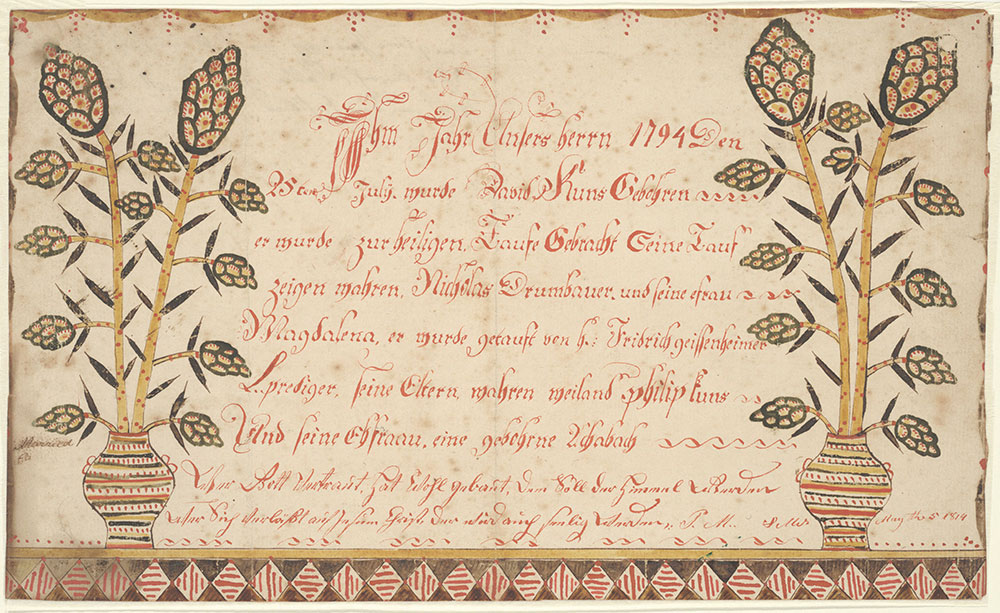 Ihm Jahr Unsers herrn 1794 Den
July. wurde David Kuns Gebohren
er wurde zur heiligen, Taufe Gebracht Seine Tauf
zeigen wahren, Nicholas Drumbauer, und seine efrau
Magdalena, er wurde getauft von h: Fridrich geissenheimer
L. prediger, seine Eltern, wahren weiland philip kuns
Und seine Ehfraau, eine gebohrne Schabach
Married
Wer Gott Vertraut, hat Wohl gebaut, Dem Soll der himmel Werden
Wer Sich Verläßt auf Jesum Christ, Der wird auch seelig Werden,
May th 5 1814